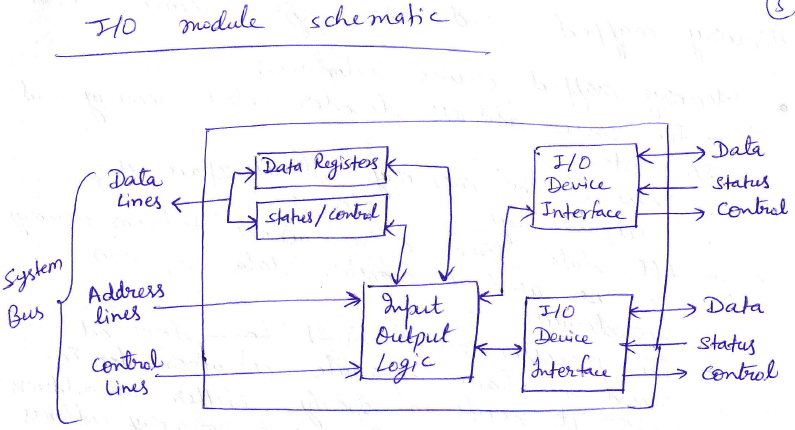 I/O module schematic
5
Data Registers
Status/Control
Data
Lines
System
Bus
Address
lines
Control
Lines
Input
Output
Logic
I/O
Device
Interface
Data
Status
Control
I/O
Device
Interface
Data
Status
Control